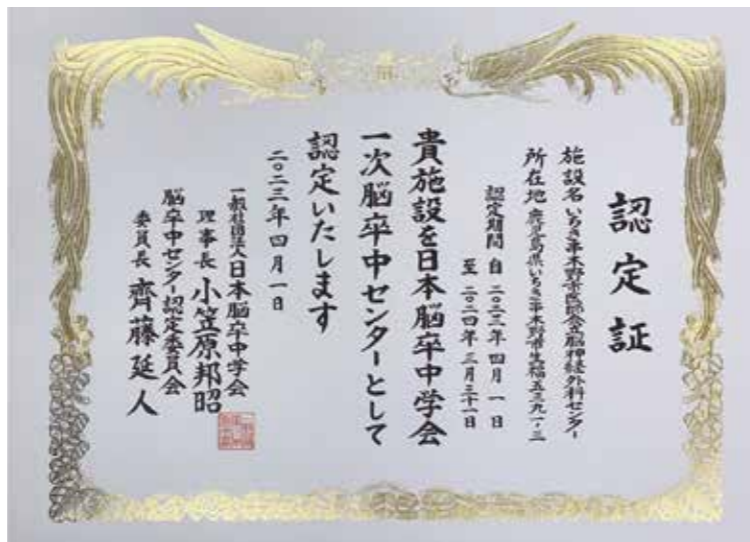 認定証
施設名 いちき串木野市医師会立脳神経外科センター
所在地 鹿児島県いちき串木野市生福五三九一-三
認定期間 自 二〇二三年 四月 一日
至 二〇二四年 三月三十一日
貴施設を日本脳卒中学会
一次脳卒中センターとして
認定いたします
二〇二三年四月一日
一般社団法人日本脳卒中学会
理事長 小笠原邦昭
脳卒中センター認定委員会
委員長 齊藤延人